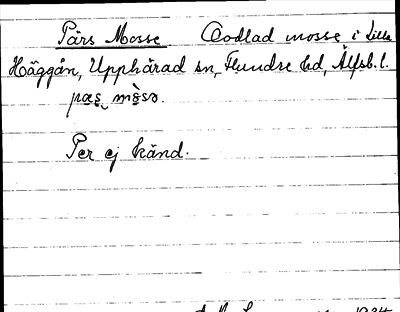 Pärs Mosse Oodlad mosse i Lilla
Häggån, Upphärad sn, Flundre hd, Älfsb. l.
pæs̨ mɵ̀sə.
Per ej känd.
1934